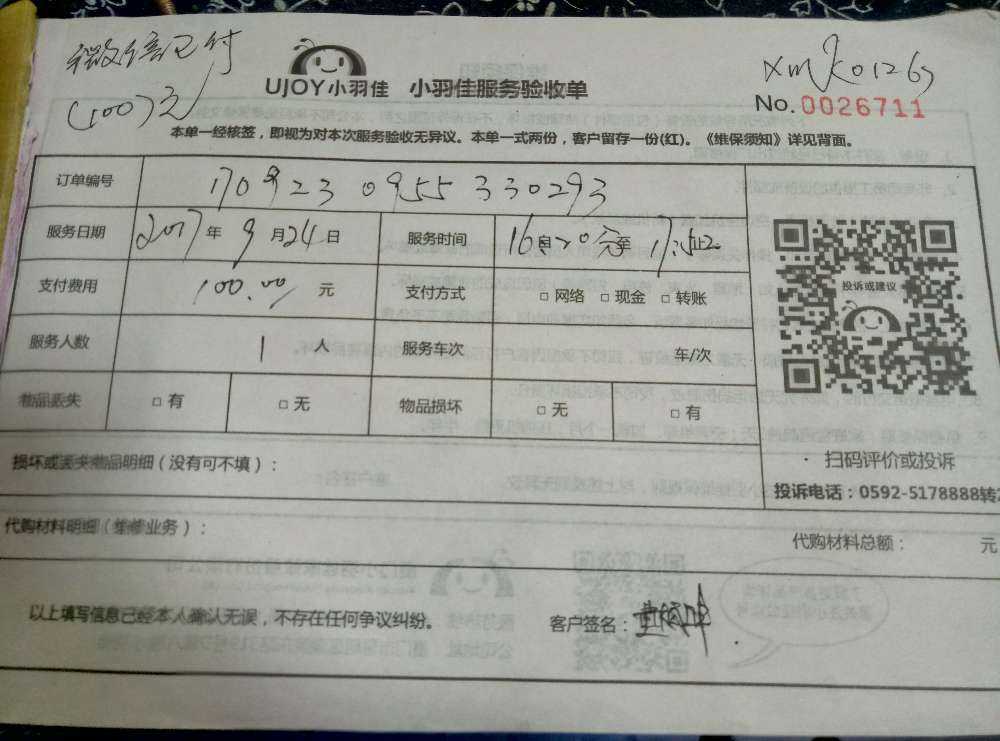 微信已付
(100)元
UJOY小羽佳 小羽佳服务验收单
xmk01265
No.0026711
本单一经核签，即视为对本次服务验收无异议。本单一式两份，客户留存一份(红)。《维保须知》详见背面。
订单编号 170923 0955 330293
服务日期 2017年9月24日 服务时间 16 至 17
支付费用 100.00元 支付方式 □网络 □现金 □转账
服务人数 1人 服务车次 车/次
物品丢失 □有 □无 物品损坏 □无 □有
投诉或建议
扫码评价或投诉
投诉电话：0592-5178888转
损坏或丢失物品明细（没有可不填）：
代购材料明细（维修业务）：
代购材料总额： 元
以上填写信息已经本人确认无误，不存在任何争议纠纷。 客户签名：